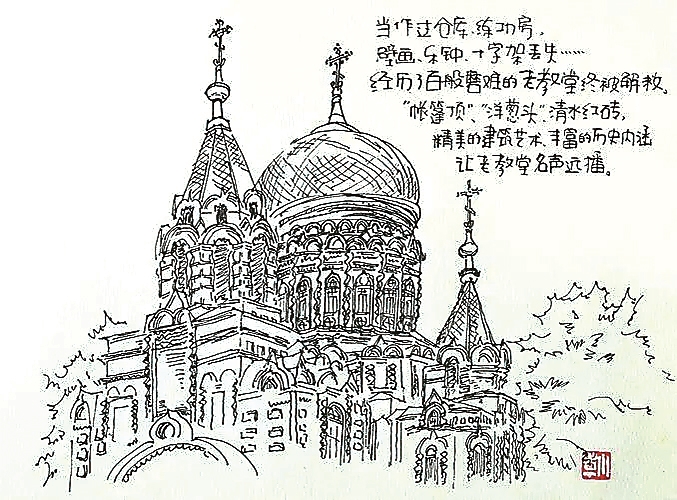 当作过仓库、练功房,
壁画、乐钟、十字架丢失……
经历了百般磨难的老教堂终被解救。
"帐篷顶"、"洋葱头"、清水红砖,
精美的建筑艺术、丰富的历史内涵
让老教堂名声远播。